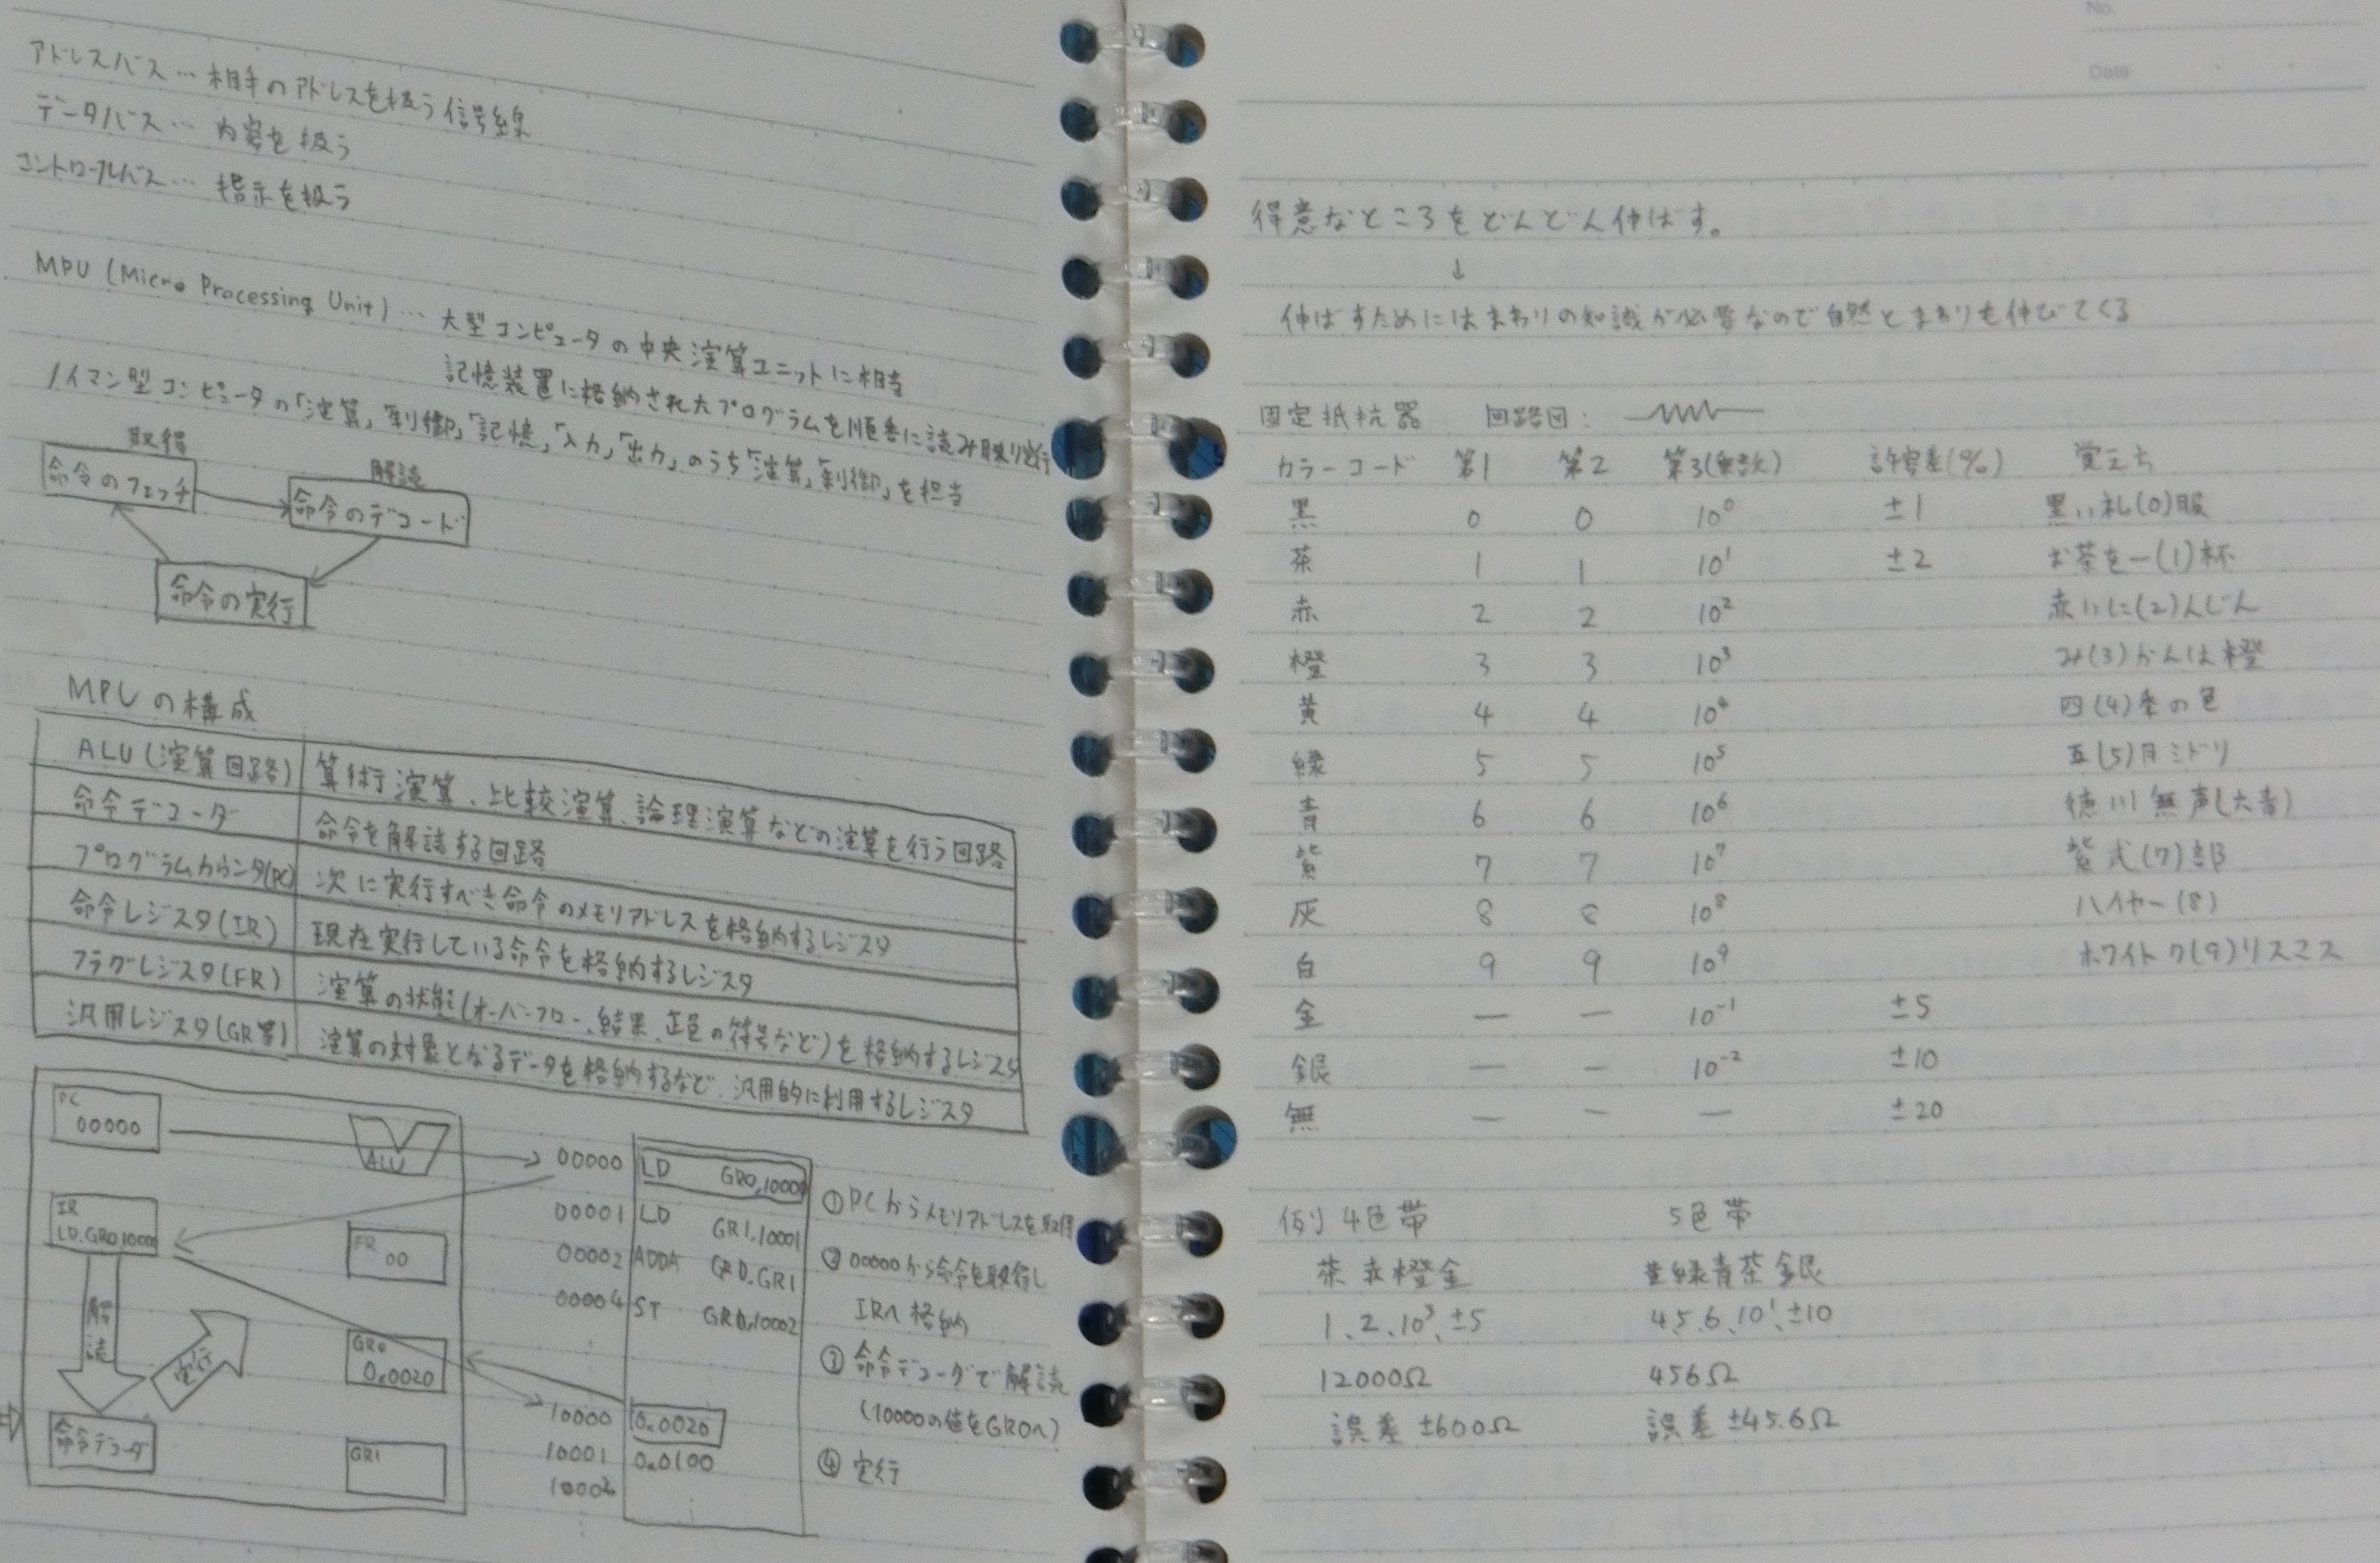 アドレスバス… 相手のアドレスを扱う信号線
データバス… 内容を扱う
コントロールバス… 指示を扱う
MPU (Micro Processing Unit) … 大型コンピュータの中央演算ユニットに相当
記憶装置に格納されたプログラムを順番に読み取り実行
ノイマン型コンピュータの「演算」「制御」「記憶」「入力」「出力」のうち「演算」「制御」を担当
取得
命令のフェッチ
解読
命令のデコード
命令の実行
MPUの構成
ALU (演算回路) 算術演算、比較演算、論理演算などの演算を行う回路
命令デコーダ 命令を解読する回路
プログラムカウンタ(PC) 次に実行すべき命令のメモリアドレスを格納するレジスタ
命令レジスタ(IR) 現在実行している命令を格納するレジスタ
フラグレジスタ(FR) 演算の状態(オーバーフロー、結果、正負の符号など)を格納するレジスタ
汎用レジスタ(GR等) 演算の対象となるデータを格納するなど、汎用的に利用するレジスタ
PC
00000
ALU
IR
LD.GR0,10000
FR
00
解読
実行
GR0
0x0020
命令デコーダ
GR1
00000 LD GR0,10000
00001 LD GR1,10001
00002 ADDA GR0.GR1
00004 ST GR0,10002
10000 0x0020
10001 0x0100
10002
①PCからメモリアドレスを取得
②00000から命令を取得し
IRへ格納
③命令デコーダで解読
(10000の値をGR0へ)
④実行
No.
Date
得意なところをどんどん伸ばす。
↓
伸ばすためにはまわりの知識が必要なので自然とまわりも伸びてくる
固定抵抗器 回路図:
カラーコード 第1 第2 第3(乗数) 許容差(%) 覚え方
黒 0 0 10⁰ ±1 黒い礼(0)服
茶 1 1 10¹ ±2 お茶を一(1)杯
赤 2 2 10² 赤いに(2)んじん
橙 3 3 10³ み(3)かんは橙
黄 4 4 10⁴ 四(4)季の色
緑 5 5 10⁵ 五(5)月ミドリ
青 6 6 10⁶ 徳川無声(六青)
紫 7 7 10⁷ 紫式(7)部
灰 8 8 10⁸ ハイヤー(8)
白 9 9 10⁹ ホワイトク(9)リスマス
金 — — 10⁻¹ ±5
銀 — — 10⁻² ±10
無 — — — ±20
例) 4色帯 5色帯
茶赤橙金 黄緑青茶銀
1、2、10³、±5 4.5.6、10¹、±10
12000Ω 456Ω
誤差 ±600Ω 誤差 ±45.6Ω